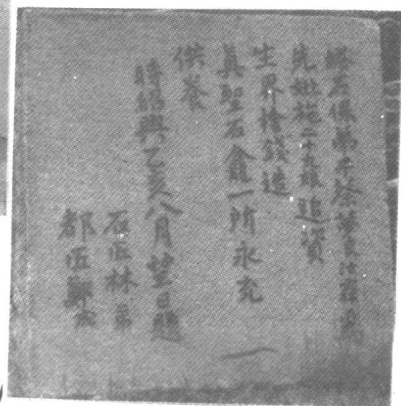 左保弟子蔡
先妣施二十五娘追資
生界捨錢造
真聖石龕一所永充
供養
時紹興乙亥八月望日題
石匠林
都匠鄭